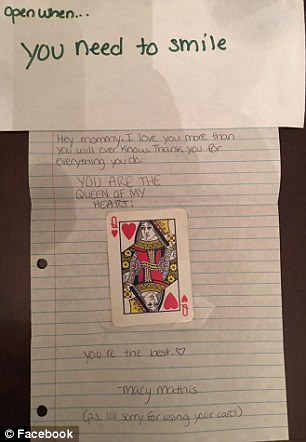 open when...
you need to smile
Hey mommy. I love you more than
you will ever know. Thank you for
everything you do.
YOU ARE THE
QUEEN OF MY
HEART!
Q
Q
you're the best. ♡
-Macy Mathis
(p.s. lol sorry for using your card)
© Facebook